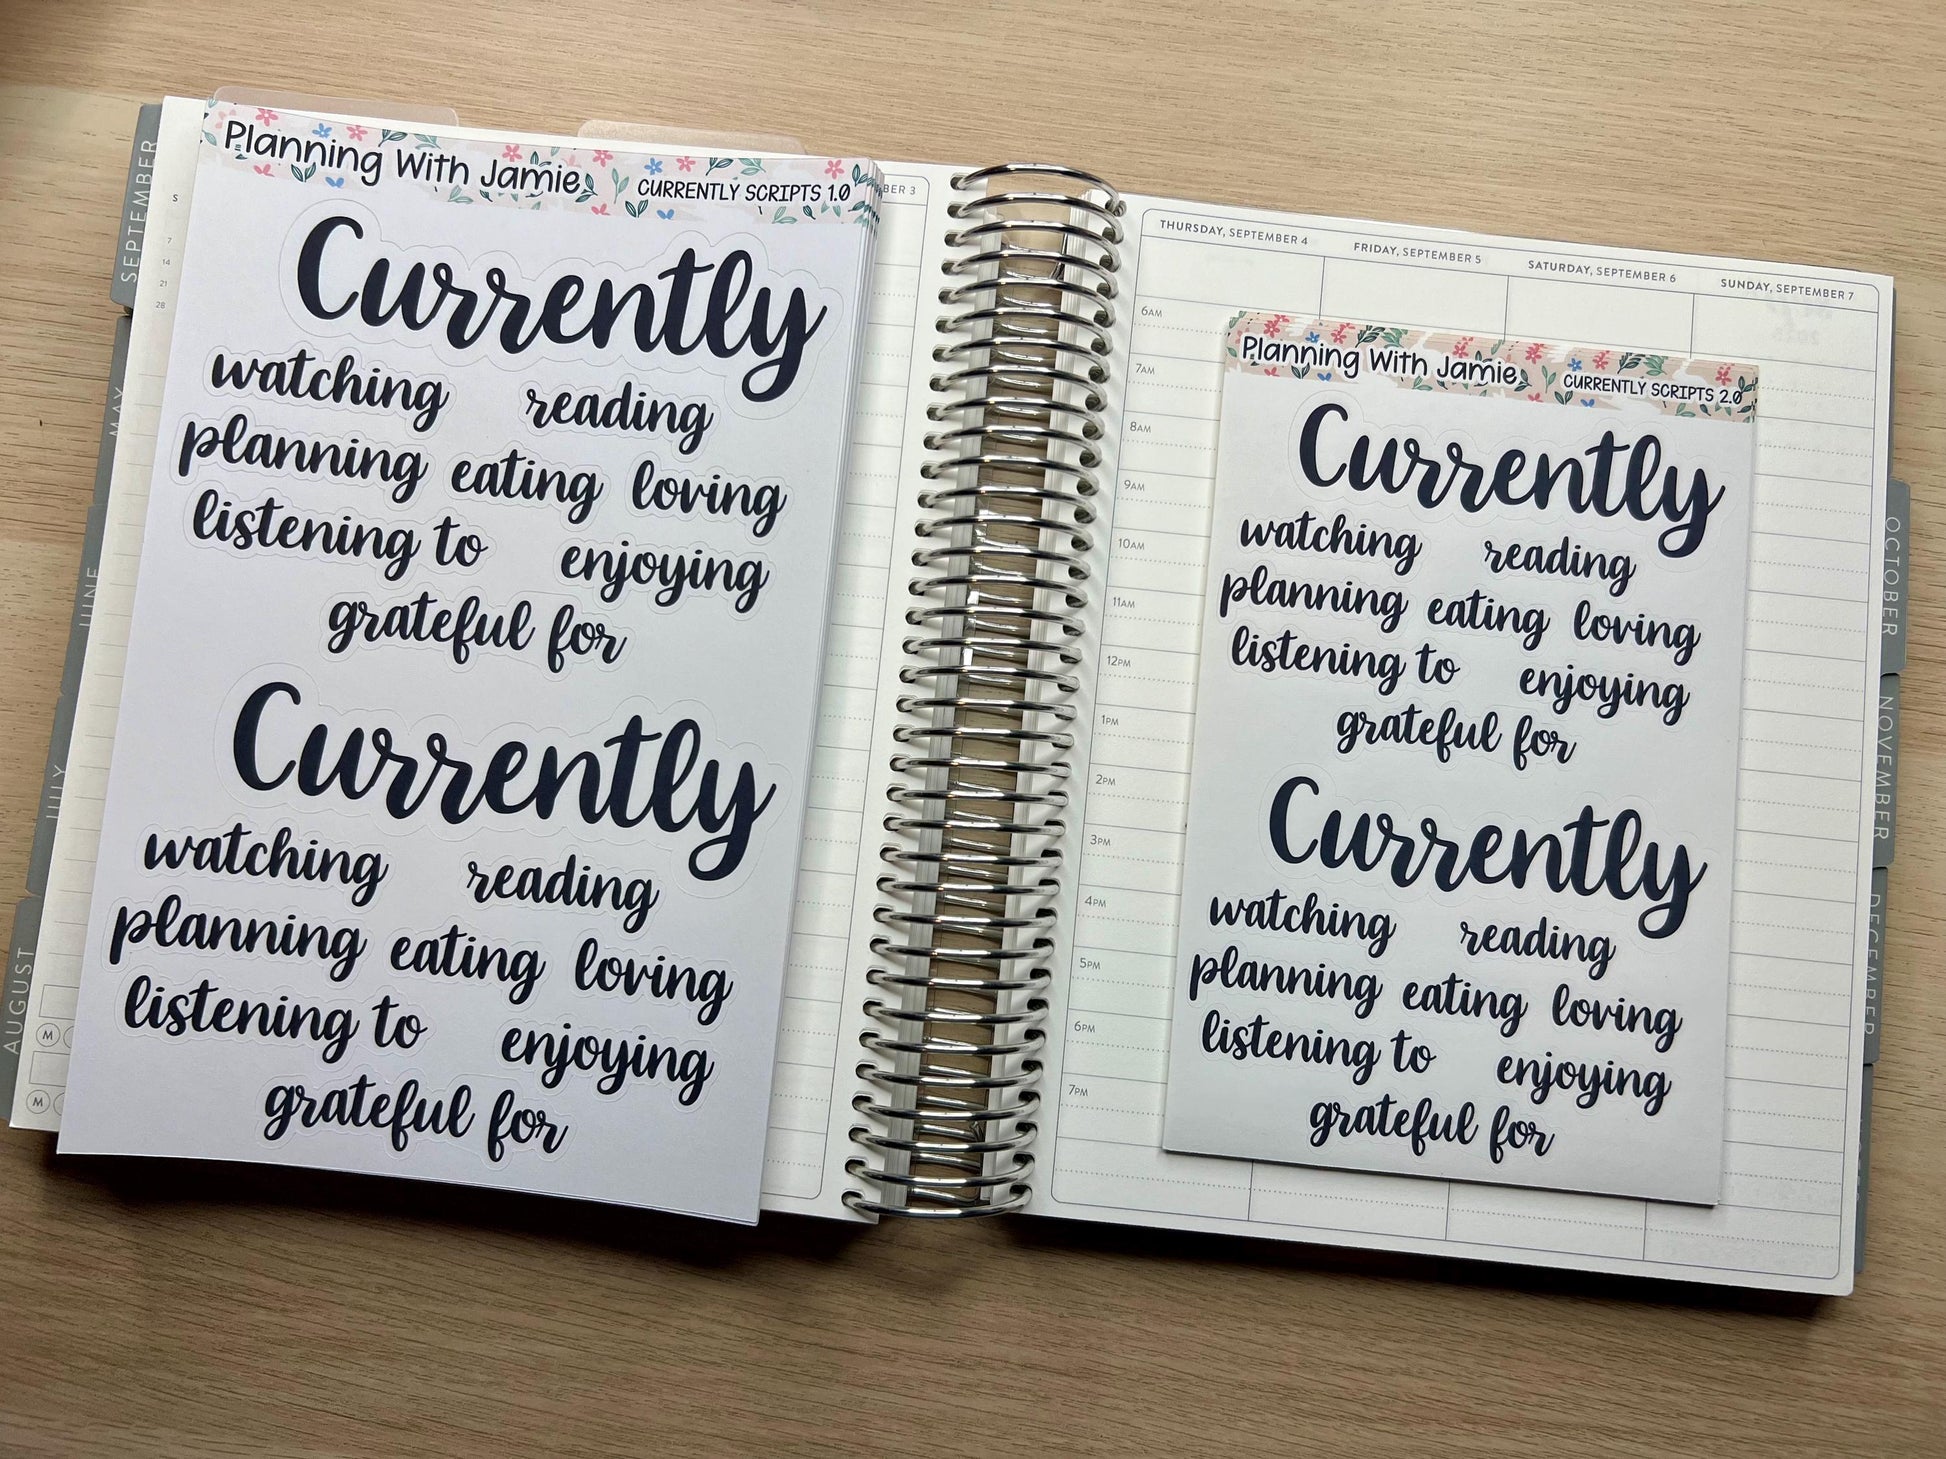 SEPTEMBER
MAY
JUNE
JULY
AUGUST
S
7
14
21
28
M
M
BER 3
Planning With Jamie
CURRENTLY SCRIPTS 1.0
Currently
watching reading
planning eating loving
listening to enjoying
grateful for
Currently
watching reading
planning eating loving
listening to enjoying
grateful for
THURSDAY, SEPTEMBER 4 FRIDAY, SEPTEMBER 5 SATURDAY, SEPTEMBER 6 SUNDAY, SEPTEMBER 7
6AM
7AM
8AM
9AM
10AM
11AM
12PM
1PM
2PM
3PM
4PM
5PM
6PM
7PM
Planning With Jamie
CURRENTLY SCRIPTS 2.0
Currently
watching reading
planning eating loving
listening to enjoying
grateful for
Currently
watching reading
planning eating loving
listening to enjoying
grateful for
OCTOBER
NOVEMBER
DECEMBER